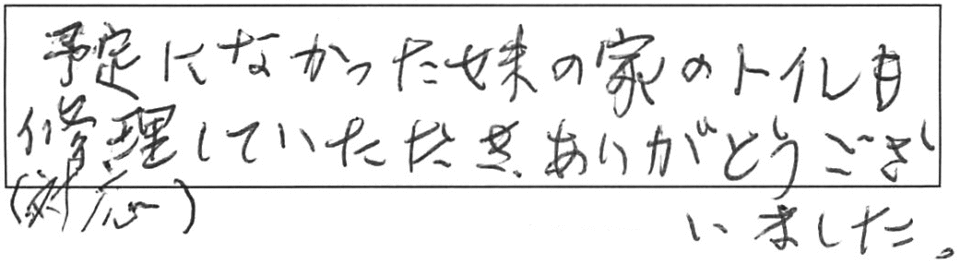 予定になかった妹の家のトイレも
修理していただき、ありがとうござ
(対応)
いました。